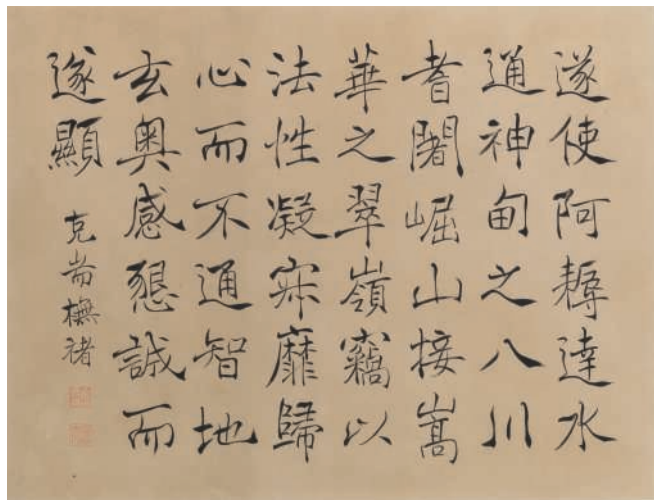 遂使阿耨達水
通神甸之八川
耆闍崛山接嵩
華之翠嶺竊以
法性凝寂靡歸
心而不通智地
玄奧感懇誠而
遂顯
克耑橅褚